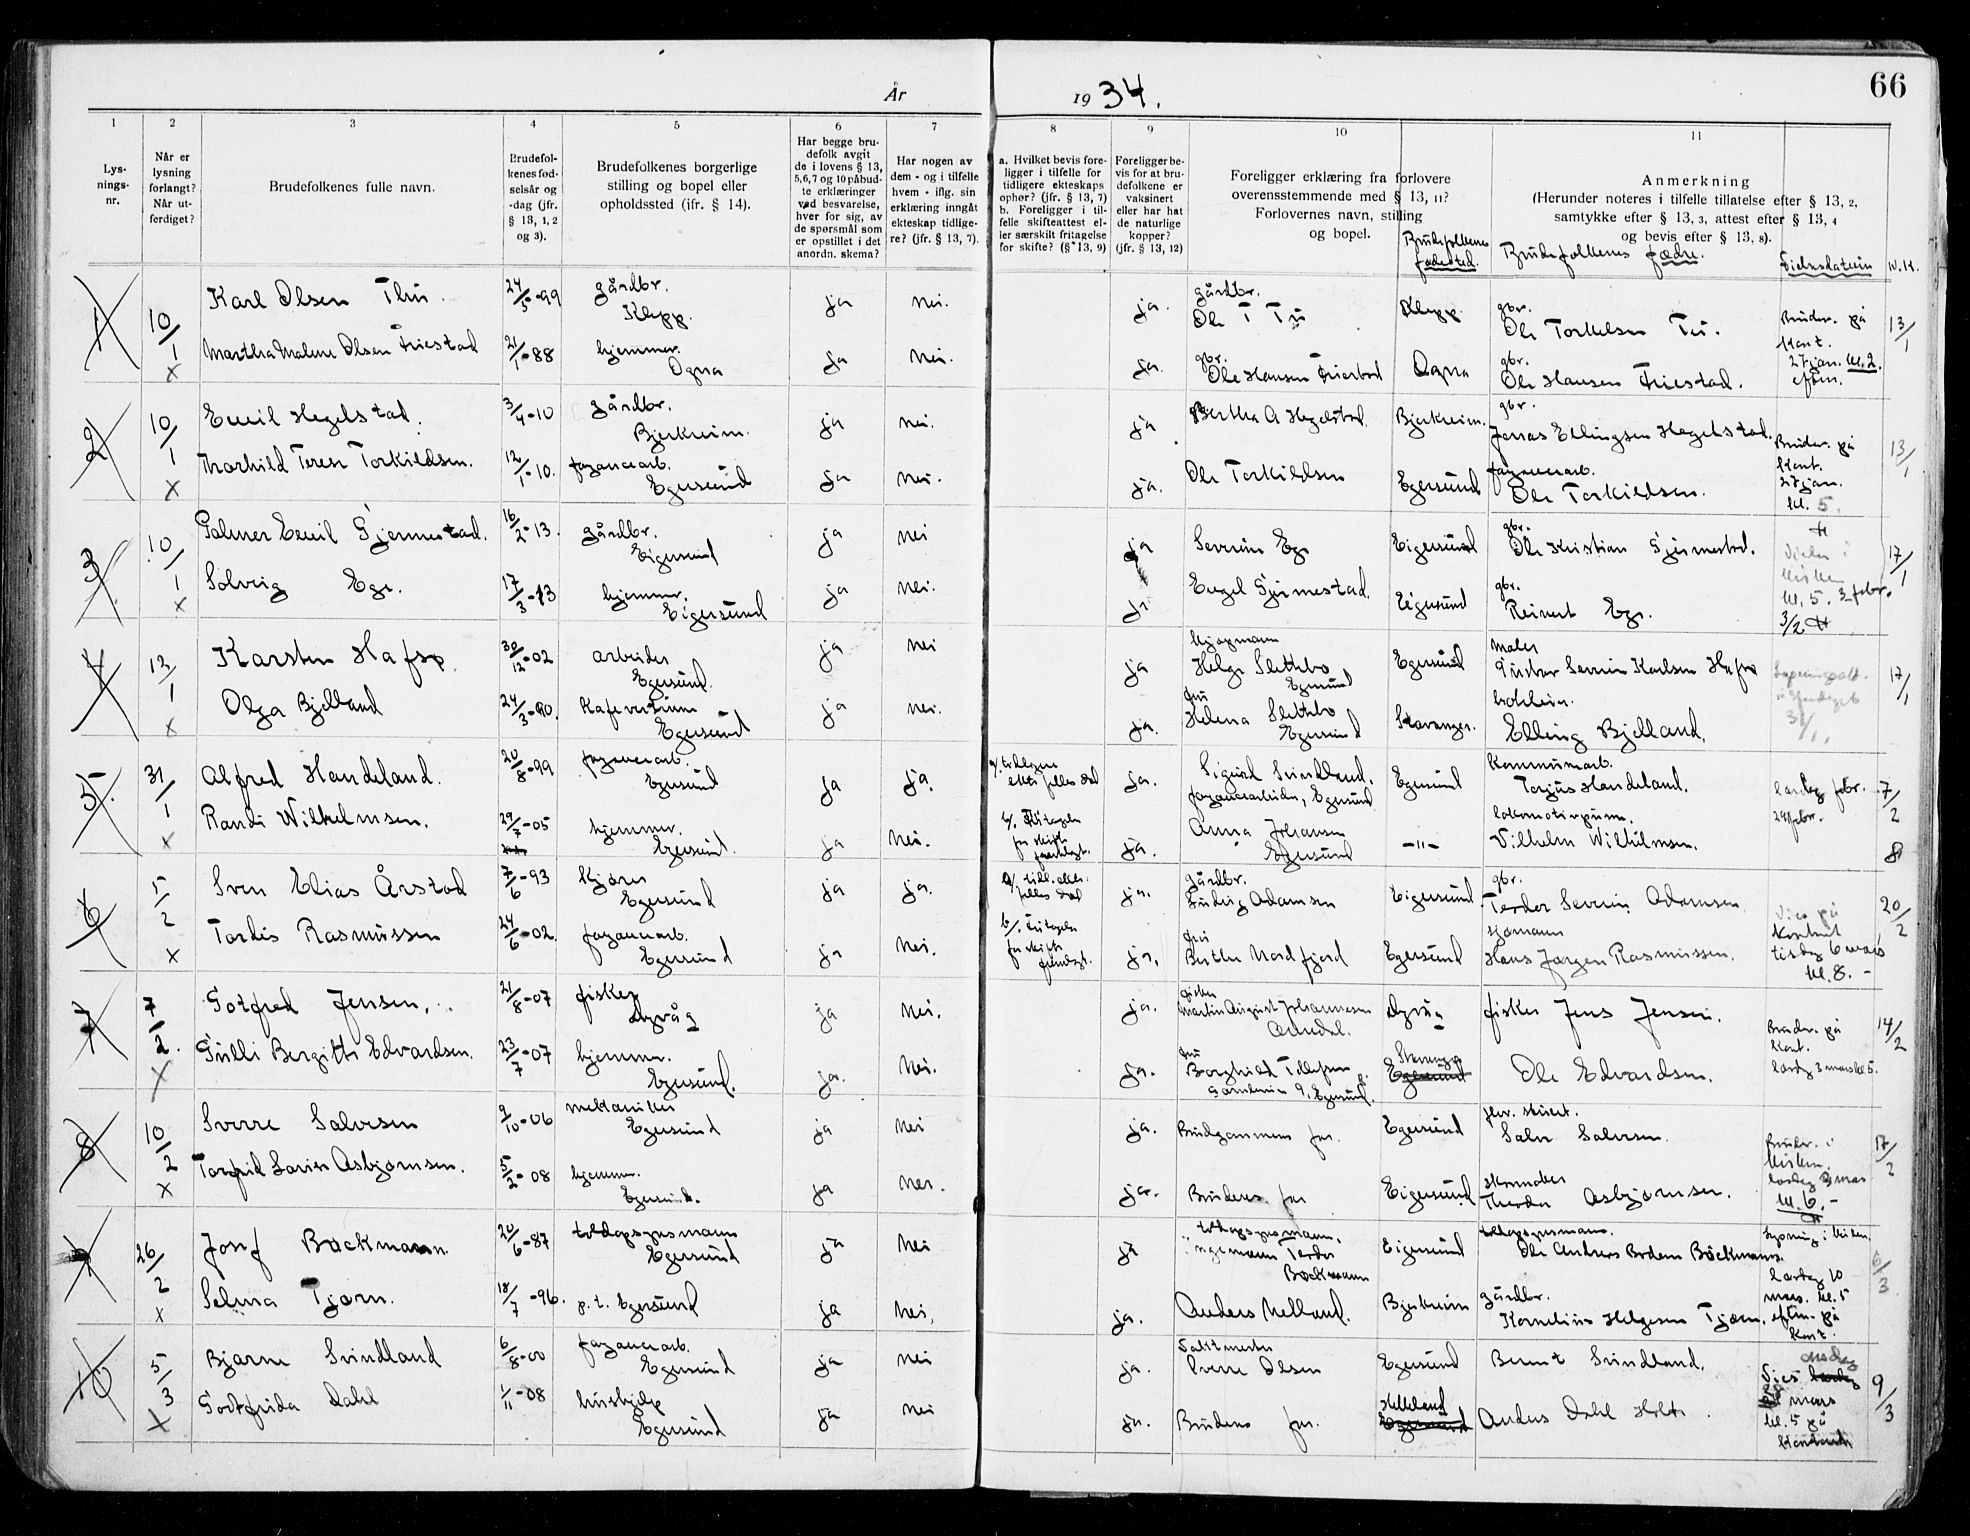 66
År 1934.
1 2 3 4 5 6 7 8 9 10 11
Lys-
nings-
nr.
Når er
lysning
forlangt?
Når ut-
ferdiget?
Brudefolkenes fulle navn.
Brudefol-
kenes fød-
selsår og
-dag (jfr.
§ 13, 1, 2
og 3).
Brudefolkenes borgerlige
stilling og bopel eller
opholdssted (ifr. § 14).
Har begge bru-
defolk avgit
de i lovens § 13,
5,6,7 og 10 påbud-
te erklæringer
ved besvarelse,
hver for sig, av
de spørsmål som
er opstillet i det
anordn. skema?
Har nogen av
dem - og i tilfelle
hvem - iflg. sin
erklæring inngåt
ekteskap tidlige-
re? (jfr. § 13, 7).
a. Hvilket bevis fore-
ligger i tilfelle for
tidligere ekteskaps
ophør? (jfr. § 13, 7)
b. Foreligger i til-
felle skifteattest el-
ler særskilt fritagelse
for skifte? (§ 13, 9)
Foreligger be-
vis for at bru-
defolkene er
vaksinert
eller har hat
de naturlige
kopper?
(jfr. § 13, 12)
Foreligger erklæring fra forlovere
overensstemmende med § 13, 11?
Forlovernes navn, stilling
og bopel.
Brudefolkenes
fødested.
Anmerkning
(Herunder noteres i tilfelle tillatelse efter § 13, 2,
samtykke efter § 13, 3, attest efter § 13, 4
og bevis efter § 13, 8).
Brudefolkenes fædre.
Vielsesdatoen
1 10/1 x Karl Olsen Thu. 24/5-99 gårdbr. Klepp. ja nei. ja. gårdbr. Ole T Tu Klepp. gbr. Ole Torkelsen Tu. Bruder. på kont. 27 jan. kl. 2. eftm. 13/1
Martha Malene Olsen Friestad 21/1-88 hjemmev. Ogna ja nei. ja. gbr. Ole Hansen Friestad Ogna gbr. Ole Hansen Friestad.
2 10/1 x Emil Hegelstad. 3/4-10 gårdbr. Bjerkreim. ja nei. ja Bertha A Hegelstad Bjerkreim. gbr. Jonas Ellingsen Hegelstad. Bruder. på kont. 27 jan. kl. 5. 13/1
Thorhild Terese Torkildsen. 12/1-10. fayancearb. Egersund ja nei. ja. Ole Torkildsen Egersund fayancearb. Ole Torkildsen.
3 10/1 x Palmer Emil Gjermestad. 16/2-13. gårdbr. Eigersund ja nei ja Severin Ege Eigersund gbr. Ole Kristian Gjermestad. Vies i kirken kl. 5. 3 febr. 3/2 17/1
Solveig Ege. 17/3-13 hjemmev. Eigersund ja nei. ja Engel Gjermestad. Eigersund gbr. Reinert Ege.
4 12/1 x Karsten Hafsø. 30/12-02 arbeider Egersund. ja nei ja kjøpmann Helge Slettebo Egersund Egersund maler Gustav Severin Karlsen Hafsø 31/1. 17/1
Olga Bjelland 24/3-90. Kafevertinne Egersund ja nei. ja. fru Helena Slettebo Egersund Stavanger. Elling Bjelland.
5. 31/1 x Alfred Handeland. 20/8-99 fayancearb. Egersund ja ja. ja. Sigurd Svindland. fayancearbeider, Egersund Egersund kommunearb. Torjus Handeland. lørdag febr. 24 febr. 7/2
Randi Wilhelmsen. 29/7-05 hjemmev. Egersund. ja nei. ja. Anna Johansen Egersund -"- lokomotivpuss. Vilhelm Wilhelmsen. 8
6 5/2 x Sven Elias Årstad 7/6-93 kjører Egersund ja ja. ja. gårdbr. Ludvig Adamsen Eigersund. gbr. Severin Adamsen Vies på kontoret tirsdag 6 mars kl. 8. - 20/2
Tordis Rasmussen 24/6-02. fayancearb. Egersund ja nei. ja, fru Berthe Nordfjord Egersund sjømann Hans Jørgen Rasmussen.
7 7/2. x Gotfred Jensen. 21/8-07 fisker Dypvåg ja nei. ja. fisker Martin August Johannesen Arendal. Dypvåg fisker Jens Jensen. Bruder. på kont. lørdag 3 mars kl. 5. 14/2
Gulli Bergitte Edvardsen. 23/7-07 hjemmev. Egersund. ja. nei. ja. fru Borghild Tollefsen Egersund. Stavanger Egersund Ole Edvardsen.
8 10/2 x Sverre Salvesen 9/10-06 mekaniker Egersund ja nei ja. Brudgommens far. Egersund Salve Salvesen. Bruder. i kirken. lørdag 3 mars kl. 6. - 17/2
Torfrid Lovise Asbjørnsen. 5/2-08 hjemmev. Egersund. ja nei. ja. Brudens far Eigersund skomaker Theodor Asbjørnsen.
9 26/2 x Josef Bøckmann. 20/6-87 toldopsynsmann Egersund ja nei ja toldopsynsmann, Bøckmann Eigersund toldopsynsmann. Ole Andreas Bødem Bøckmann. lørdag 10 mars. kl. 5 eftm. på kont. 6/3
Selma Tjørn. 18/7-96. p. t. Egersund ja nei, ja. Anders Melland. Bjerkreim gårdbr. Kornelius Helgesen Tjørn.
10 5/3 x Bjarne Svindland 6/8-00 fayancearb. Egersund ja nei ja. Sverre Olsen Egersund Bernt Svindland. onsdag Vies lørdag 28 mars kl. 5 på kontoret 9/3
Godtfrida Dahl 1/11-08 hushjelp Egersund ja nei ja. Brudens far. Helleland Egersund Anders Dahl